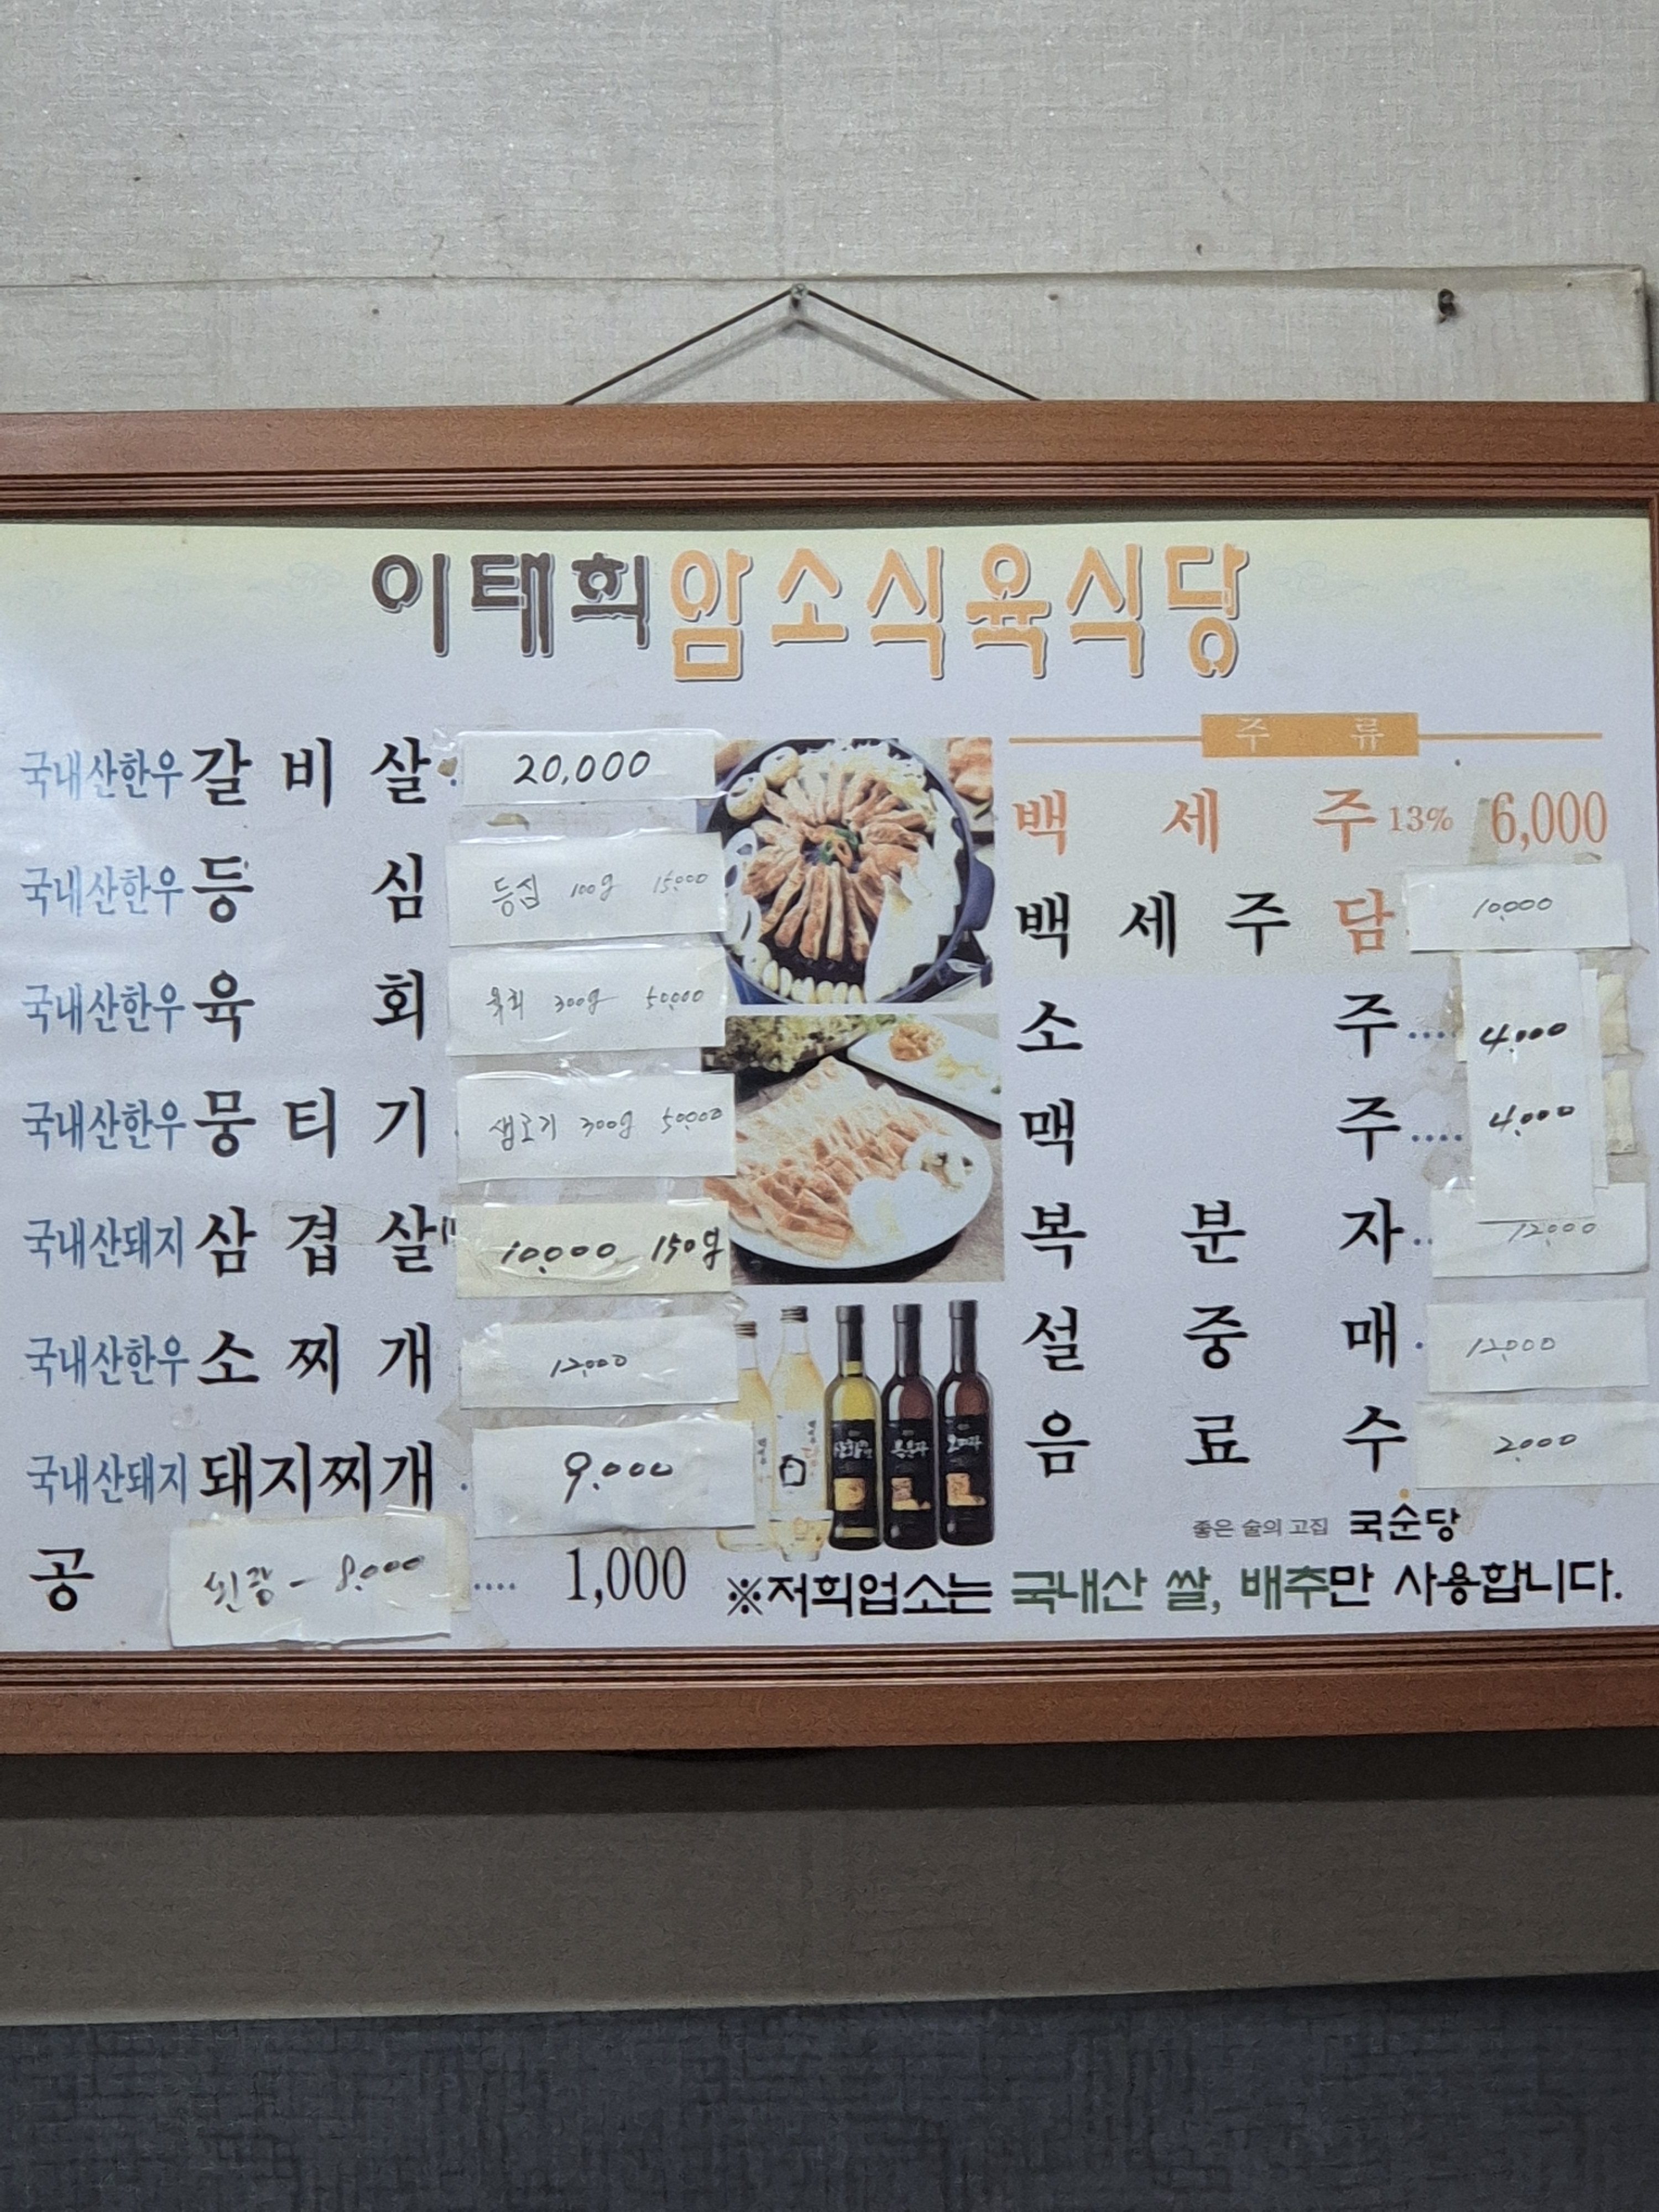 이태희암소식육식당
국내산한우 갈비살 20,000
국내산한우 등심 등심 100g 15,000
국내산한우 육회 육회 300g 50,000
국내산한우 뭉티기 생고기 300g 50,000
국내산돼지 삼겹살 10,000 150g
국내산한우 소찌개 12,000
국내산돼지 돼지찌개 9,000
공 된장 - 8,000 .... 1,000
주류
백세주 13% 6,000
백세주담 10,000
소주 .... 4,000
맥주 .... 4,000
복분자 .. 12,000
설중매 12,000
음료수 2,000
좋은 술의 고집 국순당
※저희업소는 국내산 쌀, 배추만 사용합니다.